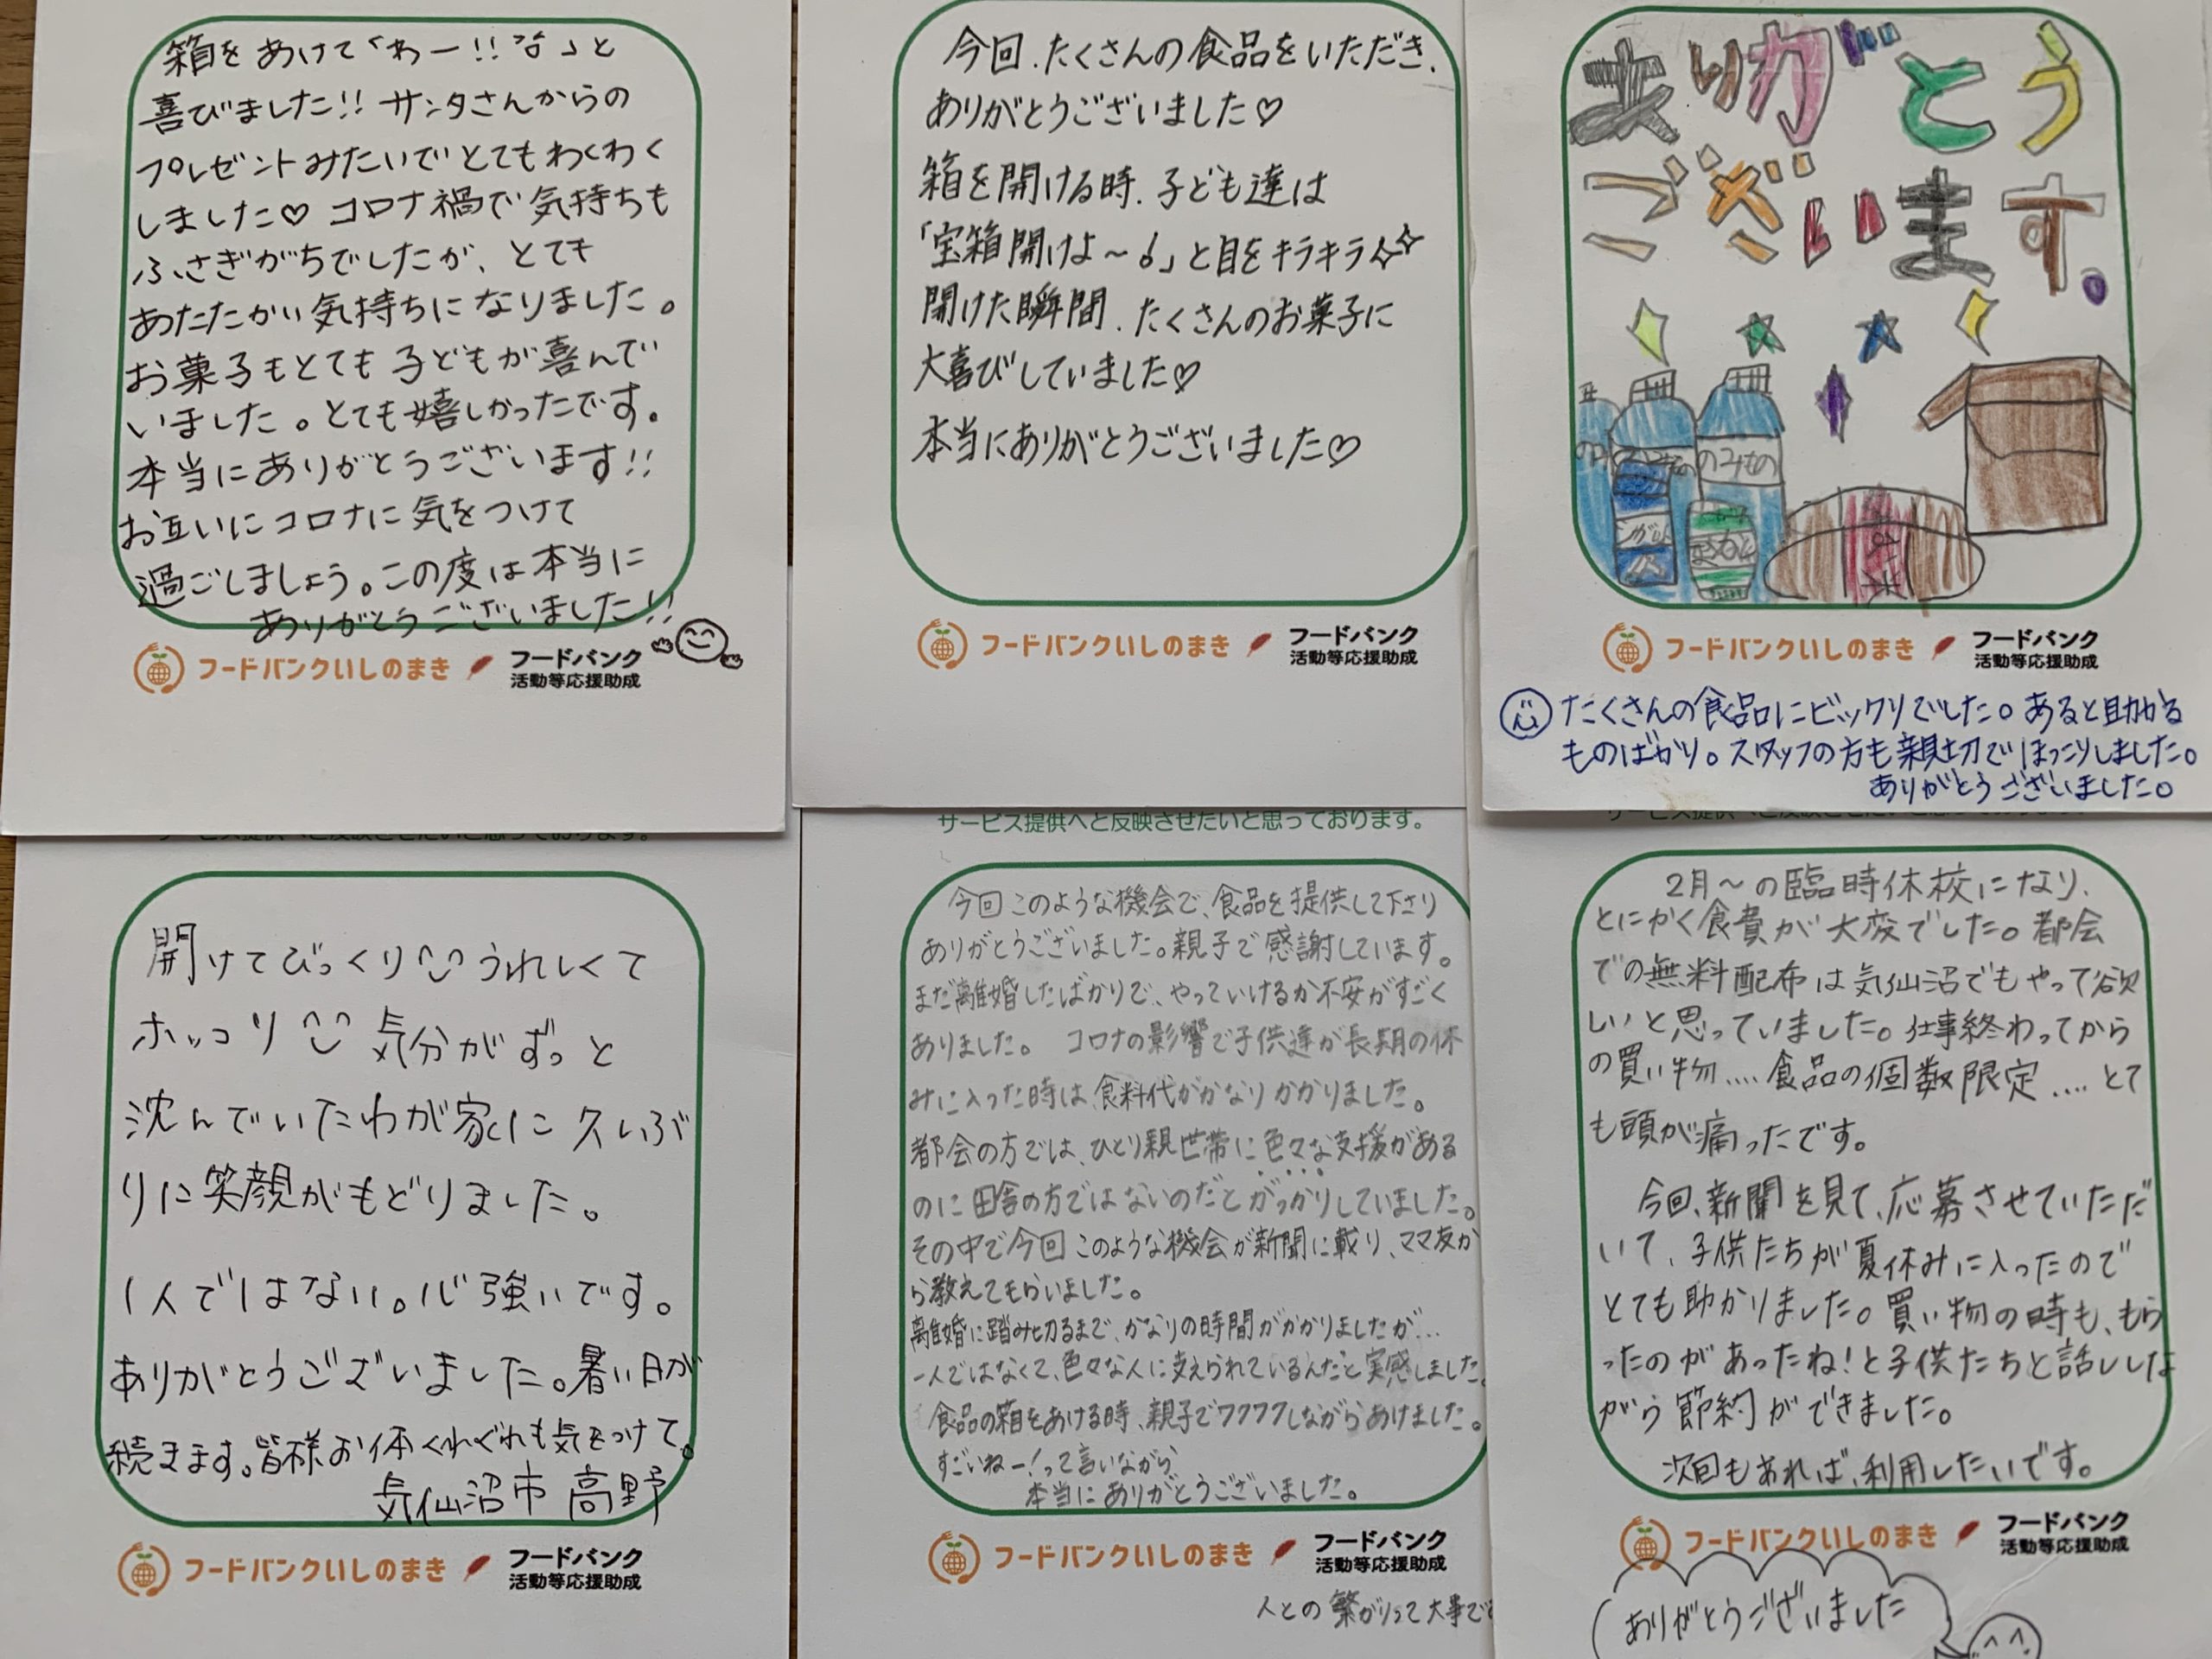 箱をあけて「わー!!」と
喜びました!! サンタさんからの
プレゼントみたいでとてもわくわく
しました♡ コロナ禍で気持ちも
ふさぎがちでしたが、とても
あたたかい気持ちになりました。
お菓子もとても子どもが喜んで
いました。とても嬉しかったです。
本当にありがとうございます!!
お互いにコロナに気をつけて
過ごしましょう。この度は本当に
ありがとうございました!!
フードバンクいしのまき
フードバンク
活動等応援助成
今回、たくさんの食品をいただき、
ありがとうございました♡
箱を開ける時、子ども達は
「宝箱開けよ〜」と目をキラキラ
開けた瞬間、たくさんのお菓子に
大喜びしていました♡
本当にありがとうございました♡
フードバンクいしのまき
フードバンク
活動等応援助成
ありがとう
ございます。
のみもの
フードバンクいしのまき
フードバンク
活動等応援助成
たくさんの食品にビックリでした。あると助かる
ものばかり。スタッフの方も親切でほっこりしました。
ありがとうございました。
開けてびっくり うれしくて
ホッコリ 気分がずっと
沈んでいたわが家に久しぶ
りに笑顔がもどりました。
1人ではない。心強いです。
ありがとうございました。暑い日が
続きます。皆様お体くれぐれも気をつけて。
気仙沼市 高野
フードバンクいしのまき
フードバンク
活動等応援助成
サービス提供へと反映させたいと思っております。
今回このような機会で、食品を提供して下さり
ありがとうございました。親子で感謝しています。
まだ離婚したばかりで、やっていけるか不安がすごく
ありました。 コロナの影響で子供達が長期の休
みに入った時は、食料代がかなりかかりました。
都会の方では、ひとり親世帯に色々な支援がある
のに田舎の方ではないのだとがっかりしていました。
その中で今回このような機会が新聞に載り、ママ友か
ら教えてもらいました。
離婚に踏み切るまで、かなりの時間がかかりましたが…
一人ではなくて、色々な人に支えられているんだと実感しました。
食品の箱をあける時、親子でワクワクしながらあけました。
すごいねー!って言いながら
本当にありがとうございました。
フードバンクいしのまき
フードバンク
活動等応援助成
人との繋がりって大事で
2月〜の臨時休校になり、
とにかく食費が大変でした。都会
での無料配布は気仙沼でもやって欲
しいと思っていました。仕事終わってから
の買い物....食品の個数限定....とて
も頭が痛ったです。
今回、新聞を見て、応募させていただ
いて、子供たちが夏休みに入ったので
とても助かりました。買い物の時も、もら
ったのがあったね!と子供たちと話しな
がら節約ができました。
次回もあれば、利用したいです。
フードバンクいしのまき
フードバンク
活動等応援助成
ありがとうございました